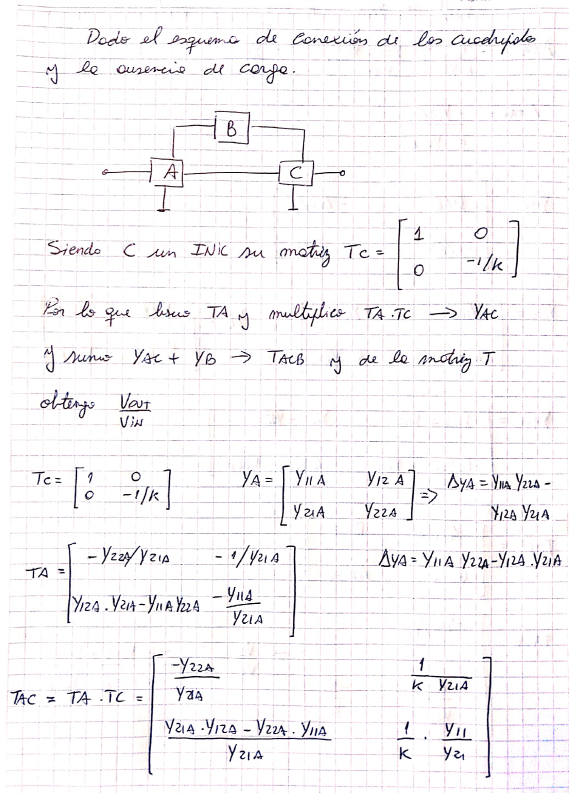 Dado el esquema de conexión de los cuadripolos
y la ausencia de carga.
B
A
C
Siendo C un INIC su matriz Tc = [ 1 0
0 -1/k ]
Por lo que busco TA y multiplico TA.TC → YAC
y sumo YAC + YB → TACB y de la matriz T
obtengo Vout/Vin
Tc = [ 1 0
0 -1/k ]
YA = [ Y11A Y12A
Y21A Y22A ] => ΔYA = Y11A Y22A -
Y12A Y21A
TA = [ -Y22A/Y21A -1/Y21A
Y12A.Y21A-Y11AY22A -Y11A/Y21A ]
ΔYA = Y11A Y22A-Y12A.Y21A
TAC = TA . TC = [ -Y22A/Y21A 1/K Y21A
Y21A.Y12A-Y22A.Y11A/Y21A 1/K . Y11/Y21 ]